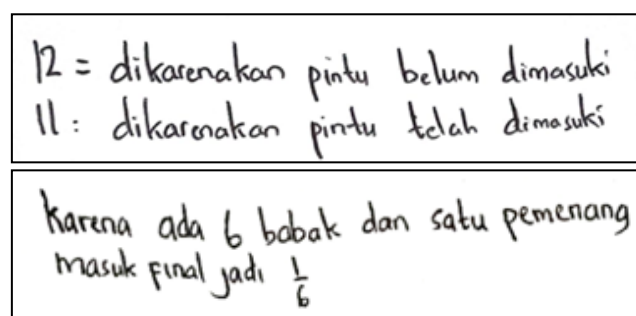 12 = dikarenakan pintu belum dimasuki
11 : dikarenakan pintu telah dimasuki
Karena ada 6 babak dan satu pemenang
masuk final jadi 1/6